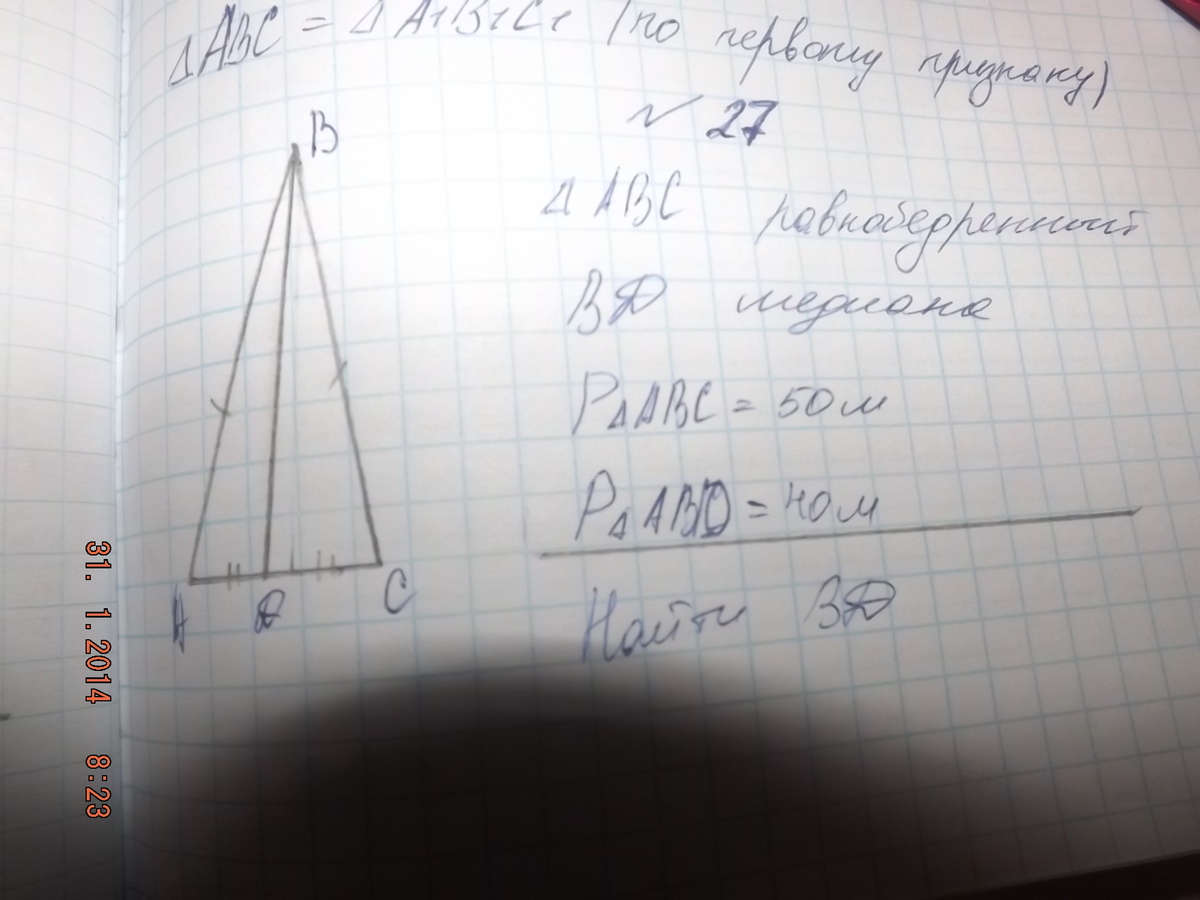 △ABC = △A1B1C1 (по первому признаку)
№ 27
B
△ABC равнобедренный
BD медиана
P△ABC = 50м
P△ABD = 40м
A D C
Найти BD
31. 1.2014 8:23